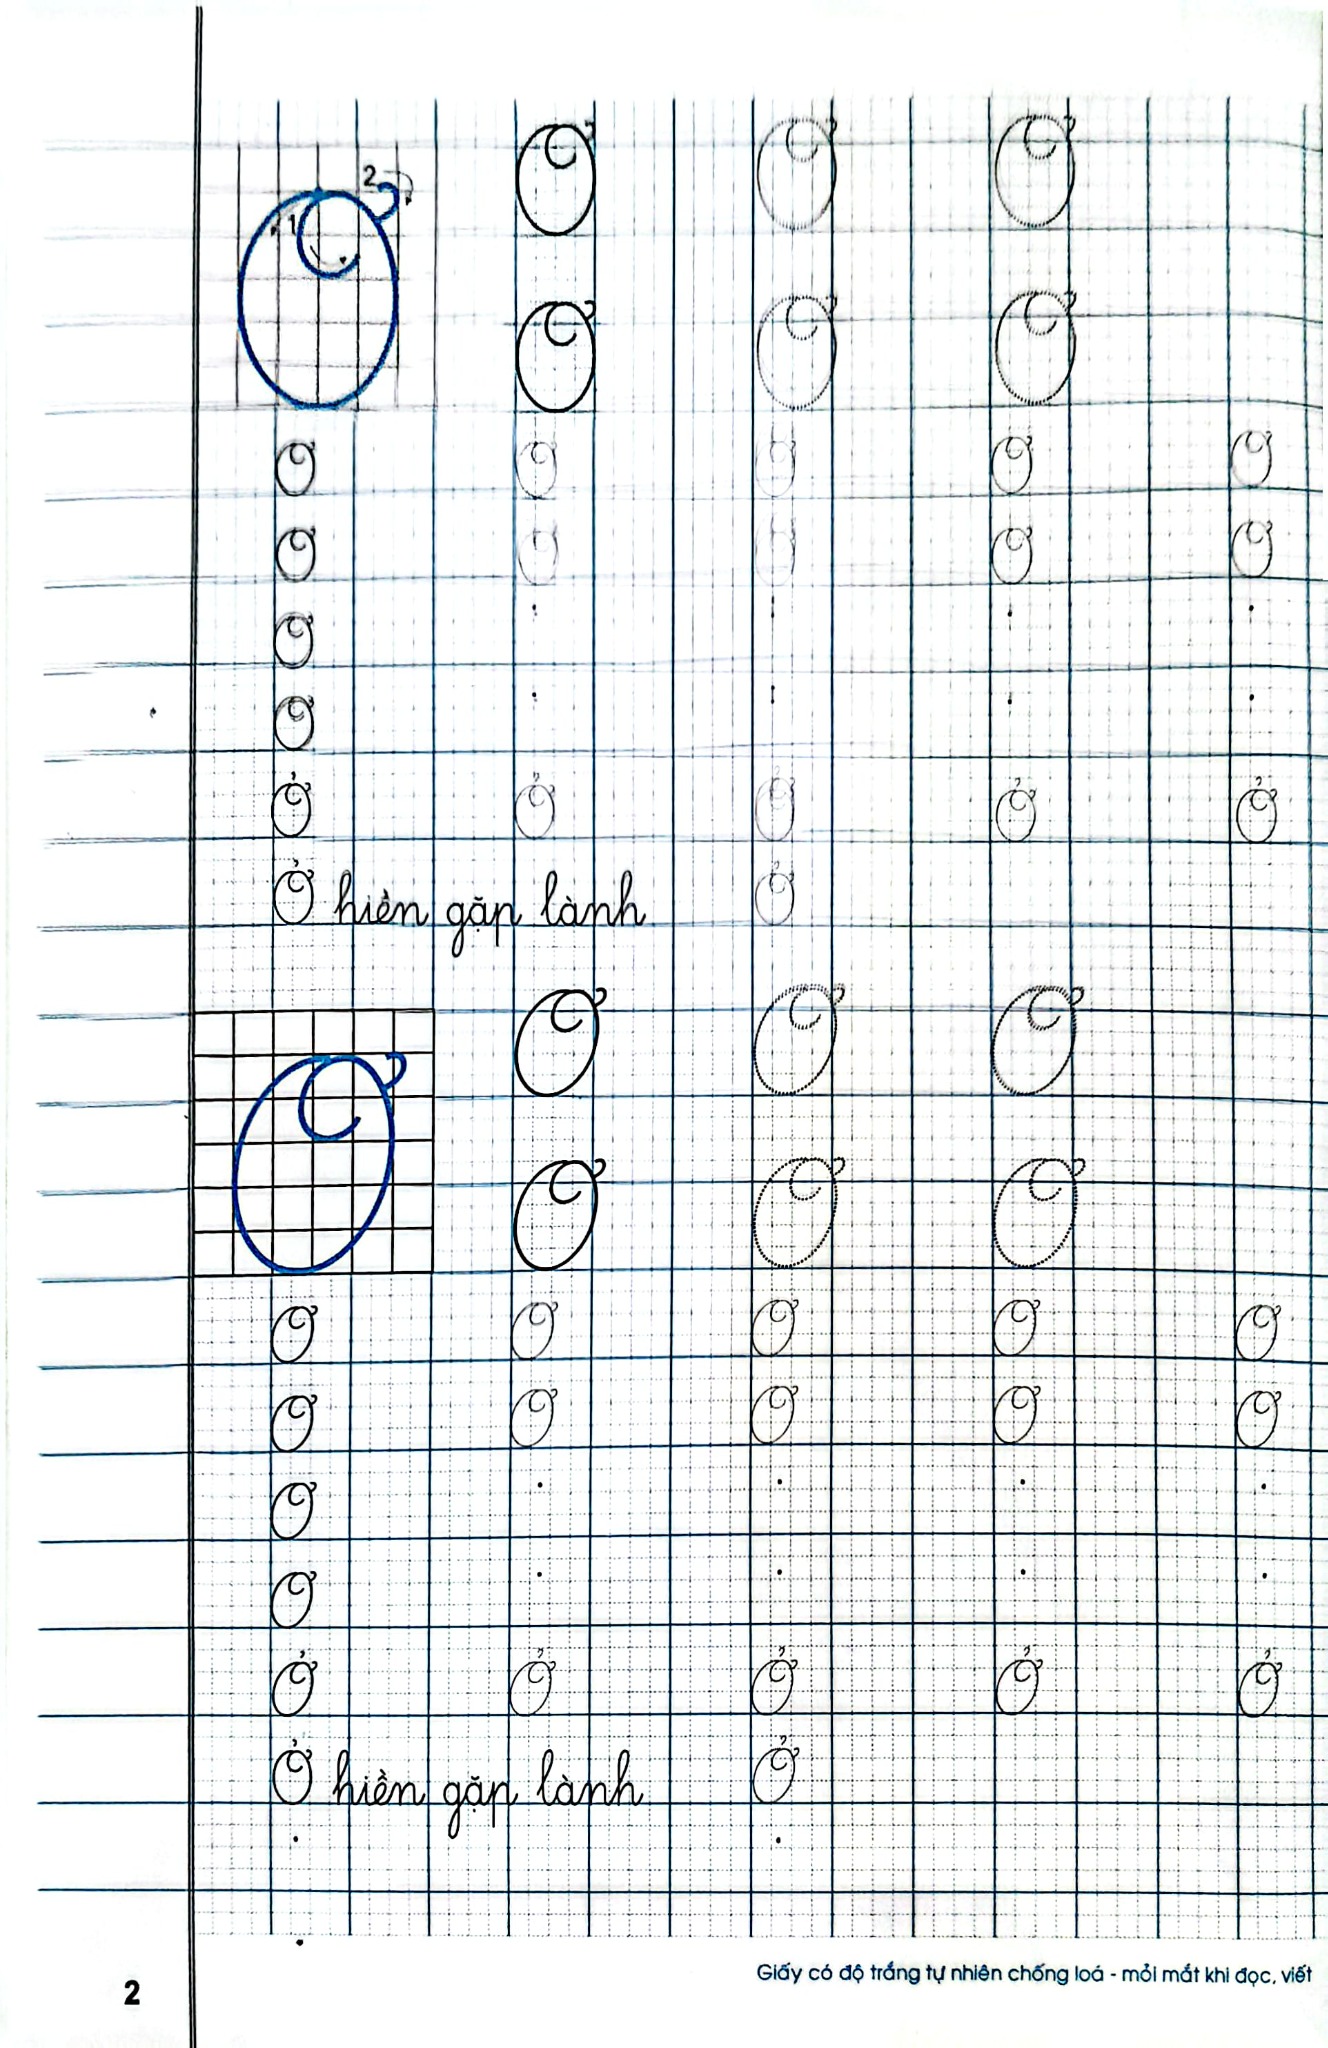 2
1
Ơ Ơ Ơ
Ơ Ơ Ơ Ơ
Ơ Ơ Ơ Ơ Ơ
Ơ Ơ Ơ Ơ Ơ
Ơ
Ơ
Ở Ở Ở Ở Ở
Ở hiền gặp lành Ở
Ơ Ơ Ơ
Ơ Ơ Ơ Ơ
Ơ Ơ Ơ Ơ Ơ
Ơ Ơ Ơ Ơ Ơ
Ơ
Ơ
Ở Ở Ở Ở Ở
Ở hiền gặp lành Ở
Giấy có độ trắng tự nhiên chống loá - mỏi mắt khi đọc, viết
2